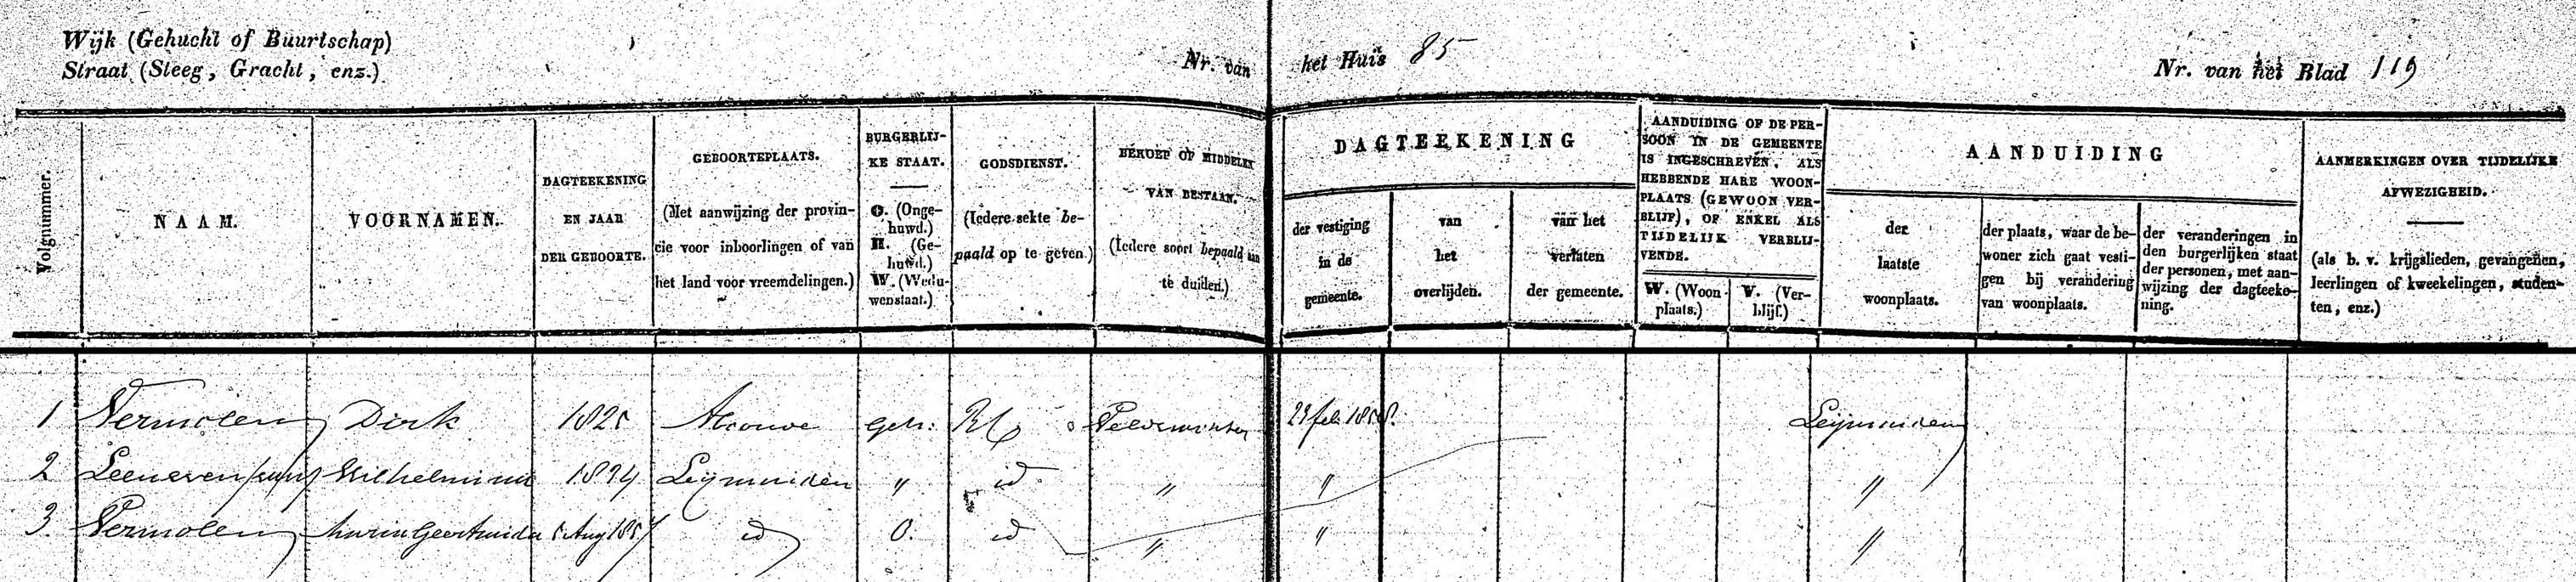 Wijk (Gehucht of Buurtschap)
Straat (Steeg, Gracht, enz.)
Nr. van het Huis 85
Nr. van het Blad 119
Volgnummer.
NAAM.
VOORNAMEN.
DAGTEEKENING
EN JAAR
DER GEBOORTE.
GEBOORTEPLAATS.
(Met aanwijzing der provin-
cie voor inboorlingen of van
het land voor vreemdelingen.)
BURGERLIJ-
KE STAAT.
O. (Onge-
huwd.)
H. (Ge-
huwd.)
W. (Wedu-
wenstaat.)
GODSDIENST.
(Iedere sekte be-
paald op te geven.)
BEROEP OF MIDDELEN
VAN BESTAAN.
(Iedere soort bepaald aan
te duiden.)
DAGTEEKENING
der vestiging
in de
gemeente.
van
het
overlijden.
van het
verlaten
der gemeente.
AANDUIDING OF DE PER-
SOON IN DE GEMEENTE
IS INGESCHREVEN, ALS
HEBBENDE HARE WOON-
PLAATS (GEWOON VER-
BLIJF), OF ENKEL ALS
TIJDELIJK VERBLIJ-
VENDE.
W. (Woon-
plaats.)
V. (Ver-
blijf.)
AANDUIDING
der
laatste
woonplaats.
der plaats, waar de be-
woner zich gaat vesti-
gen bij verandering
van woonplaats.
der veranderingen in
den burgerlijken staat
der personen, met aan-
wijzing der dagteeke-
ning.
AANMERKINGEN OVER TIJDELIJKE
AFWEZIGHEID.
(als b. v. krijgslieden, gevangenen,
leerlingen of kweekelingen, studen-
ten, enz.)
1 Vermolen Dirk 1825 geh. RC 23 feb 1858. Leijmuiden
2 Wilhelmina 1824 Leijmuiden " id " " "
3. Vermolen Maria Geertruida 5 Aug 1857 id O. id " " "